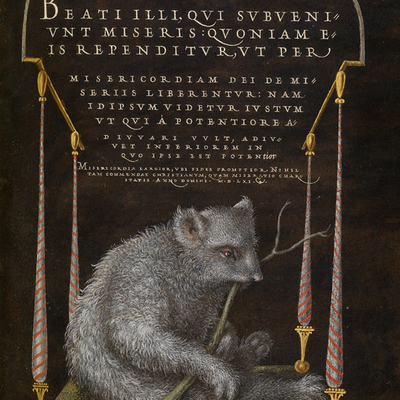 BEATI ILLI, QVI SVBVENI//
VNT MISERIS: QVONIAM E//
IS REPENDITVR, VT PER
MISERICORDIAM DEI DE MI//
SERIIS LIBERENTVR: NAM
ID IPSVM VIDETVR IVSTVM
VT QVI À POTENTIORE A//
DIVVARI VVLT, ADIV//
VET INFERIOREM IN
QVO IPSE EST POTENtior
MISERICORDIA LARGIOR, VBI FIDES PROMPTIOR. NIHIL
TAM COMMENDAT CHRISTIANVM, QVAM MISERATIO CHARI
TATIS ANNO DOMINI · M · D · LXI ·